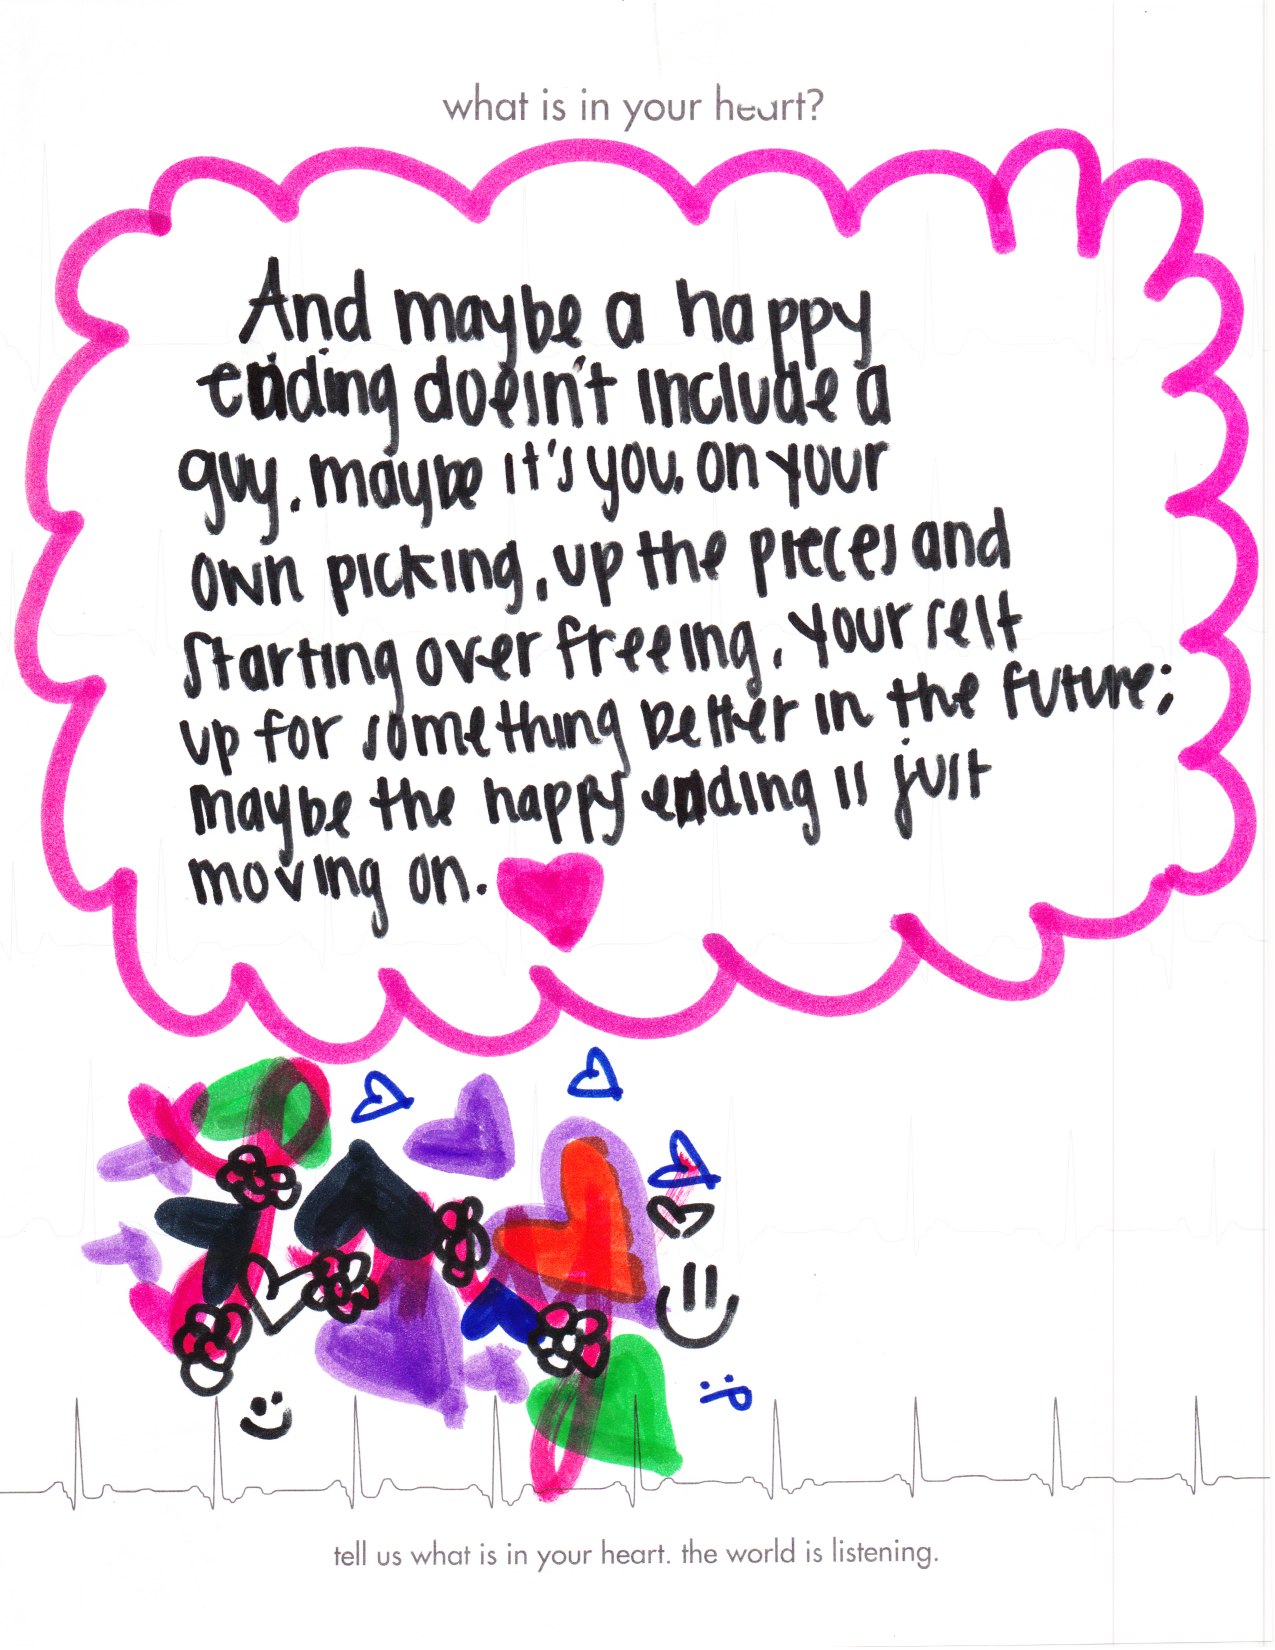 what is in your heart?
And maybe a happy
ending doesn't include a
guy. maybe it's you, on your
own picking, up the pieces and
starting over freeing, yourself
up for something better in the future;
maybe the happy ending is just
moving on.
:P
tell us what is in your heart. the world is listening.